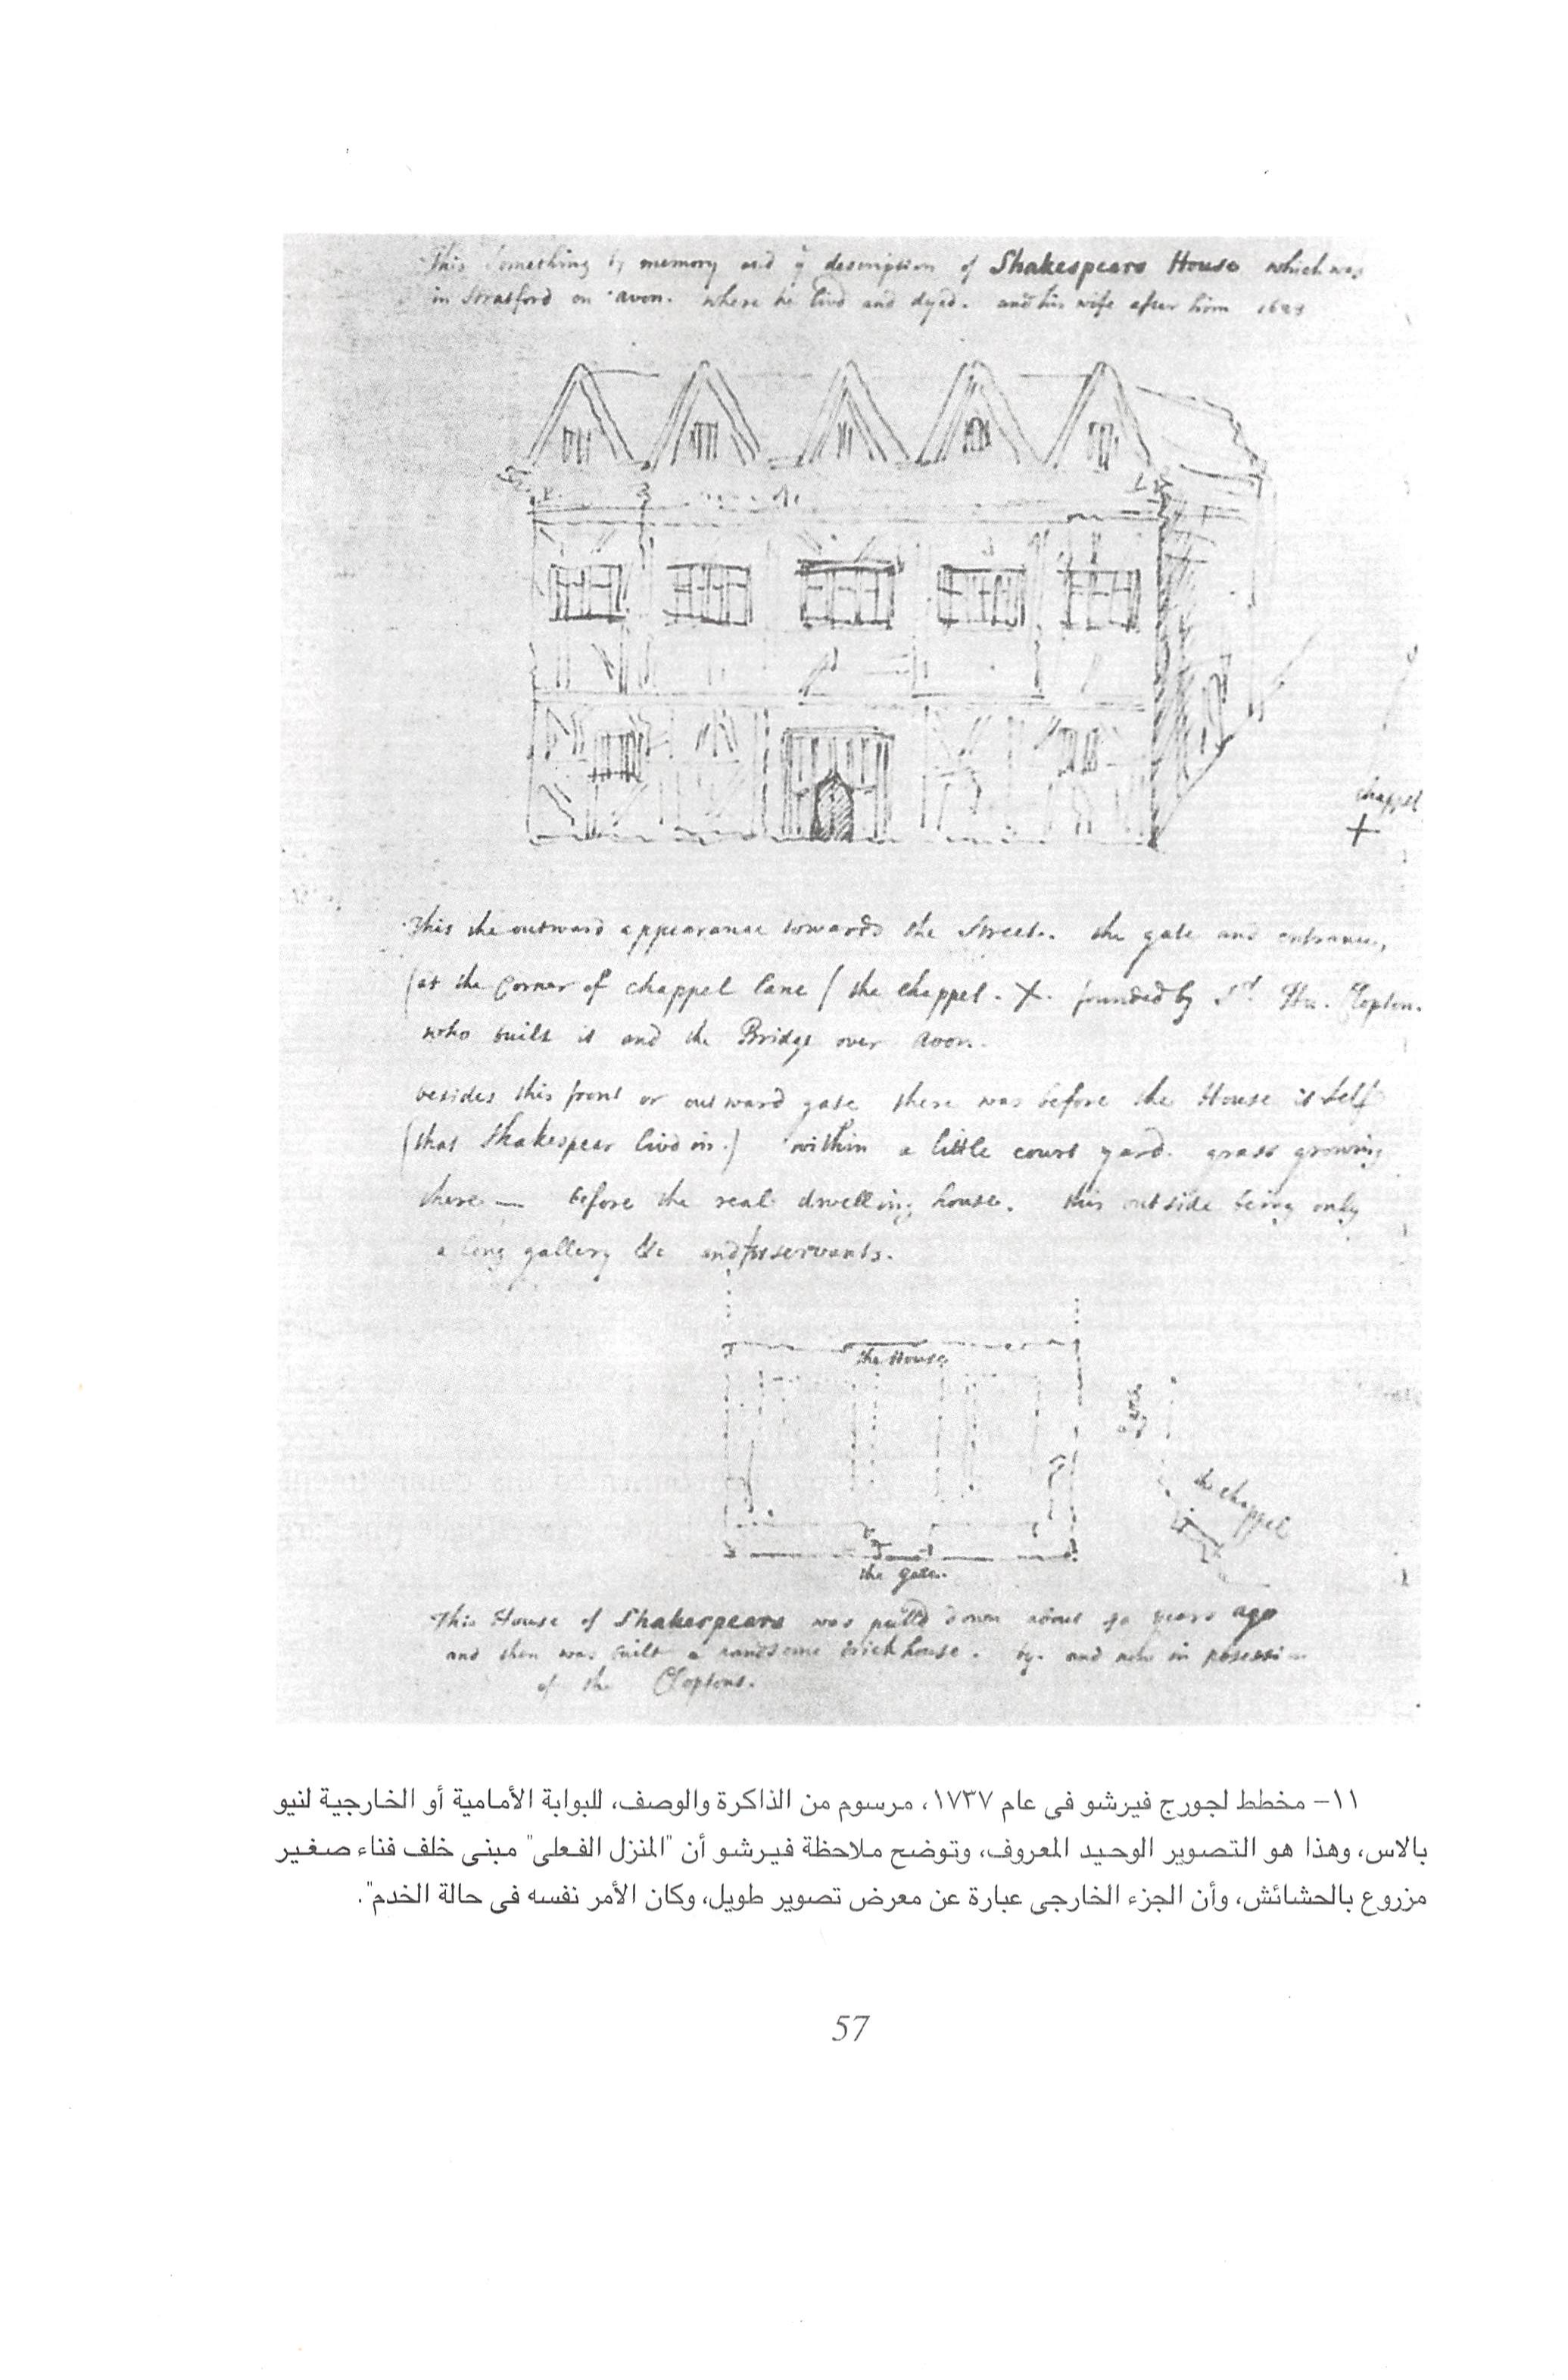 This something by memory and ye description of Shakespears House which was
in Stratford on avon. where he livd and dyed. and his wife after him 1623
chappel
This the outward appearance towards the Street. the gate and entrance,
(at the Corner of chappel lane / the chappel. X. founded by Sr. Hu. Clopton.
who built it and the Bridge over Avon.
besides this front or outward gate there was before the House it self
(that Shakespear livd in.) within a little court yard. grass growing
there — before the real dwelling house. this outside being only
a long gallery &c and for servants.
the House
the chappel
the gate.
This House of Shakespears was pulld down about 40 years ago
and then was built a handsome brick house. by. and now in possession
of the Cloptons.
١١– مخطط لجورج فيرشو فى عام ١٧٣٧، مرسوم من الذاكرة والوصف، للبوابة الأمامية أو الخارجية لنيو
بالاس، وهذا هو التصوير الوحيد المعروف، وتوضح ملاحظة فيرشو أن "المنزل الفعلى" مبنى خلف فناء صغير
مزروع بالحشائش، وأن الجزء الخارجى عبارة عن معرض تصوير طويل، وكان الأمر نفسه فى حالة الخدم".
57